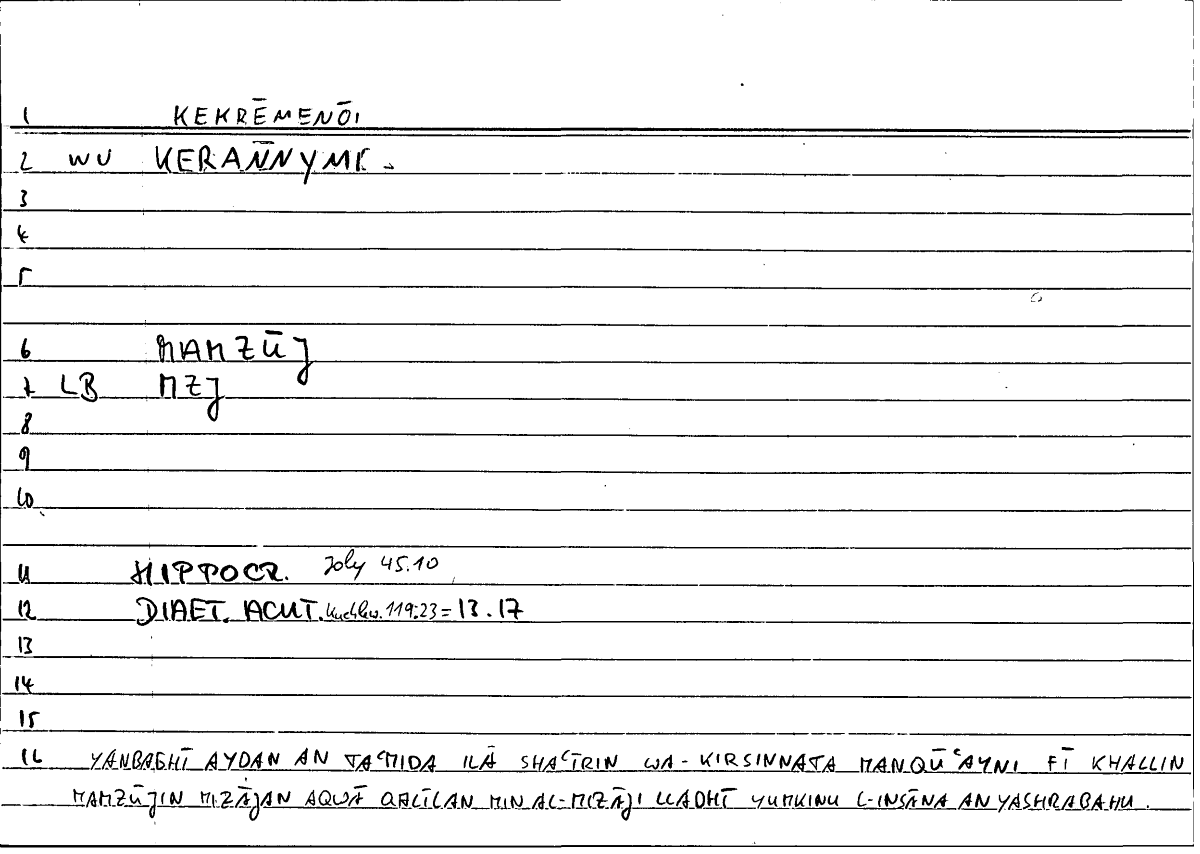 1 KEKRĒMENŌI
2 WU KERANNYMI.
3
4
5
6 MAMZŪJ
7 LB MZJ
8
9
10
11 HIPPOCR. Joly 45.10
12 DIAET. ACUT. Kuehlew. 119:23 = 13.17
13
14
15
16 YANBAGHĪ AYDAN AN TAʿMIDA ILĀ SHAʿĪRIN WA-KIRSINNATA MANQŪʿAYNI FĪ KHALLIN
MAMZŪJIN MIZĀJAN AQWĀ QALĪLAN MIN AL-MIZĀJI LLADHĪ YUMKINU L-INSĀNA AN YASHRABAHU.